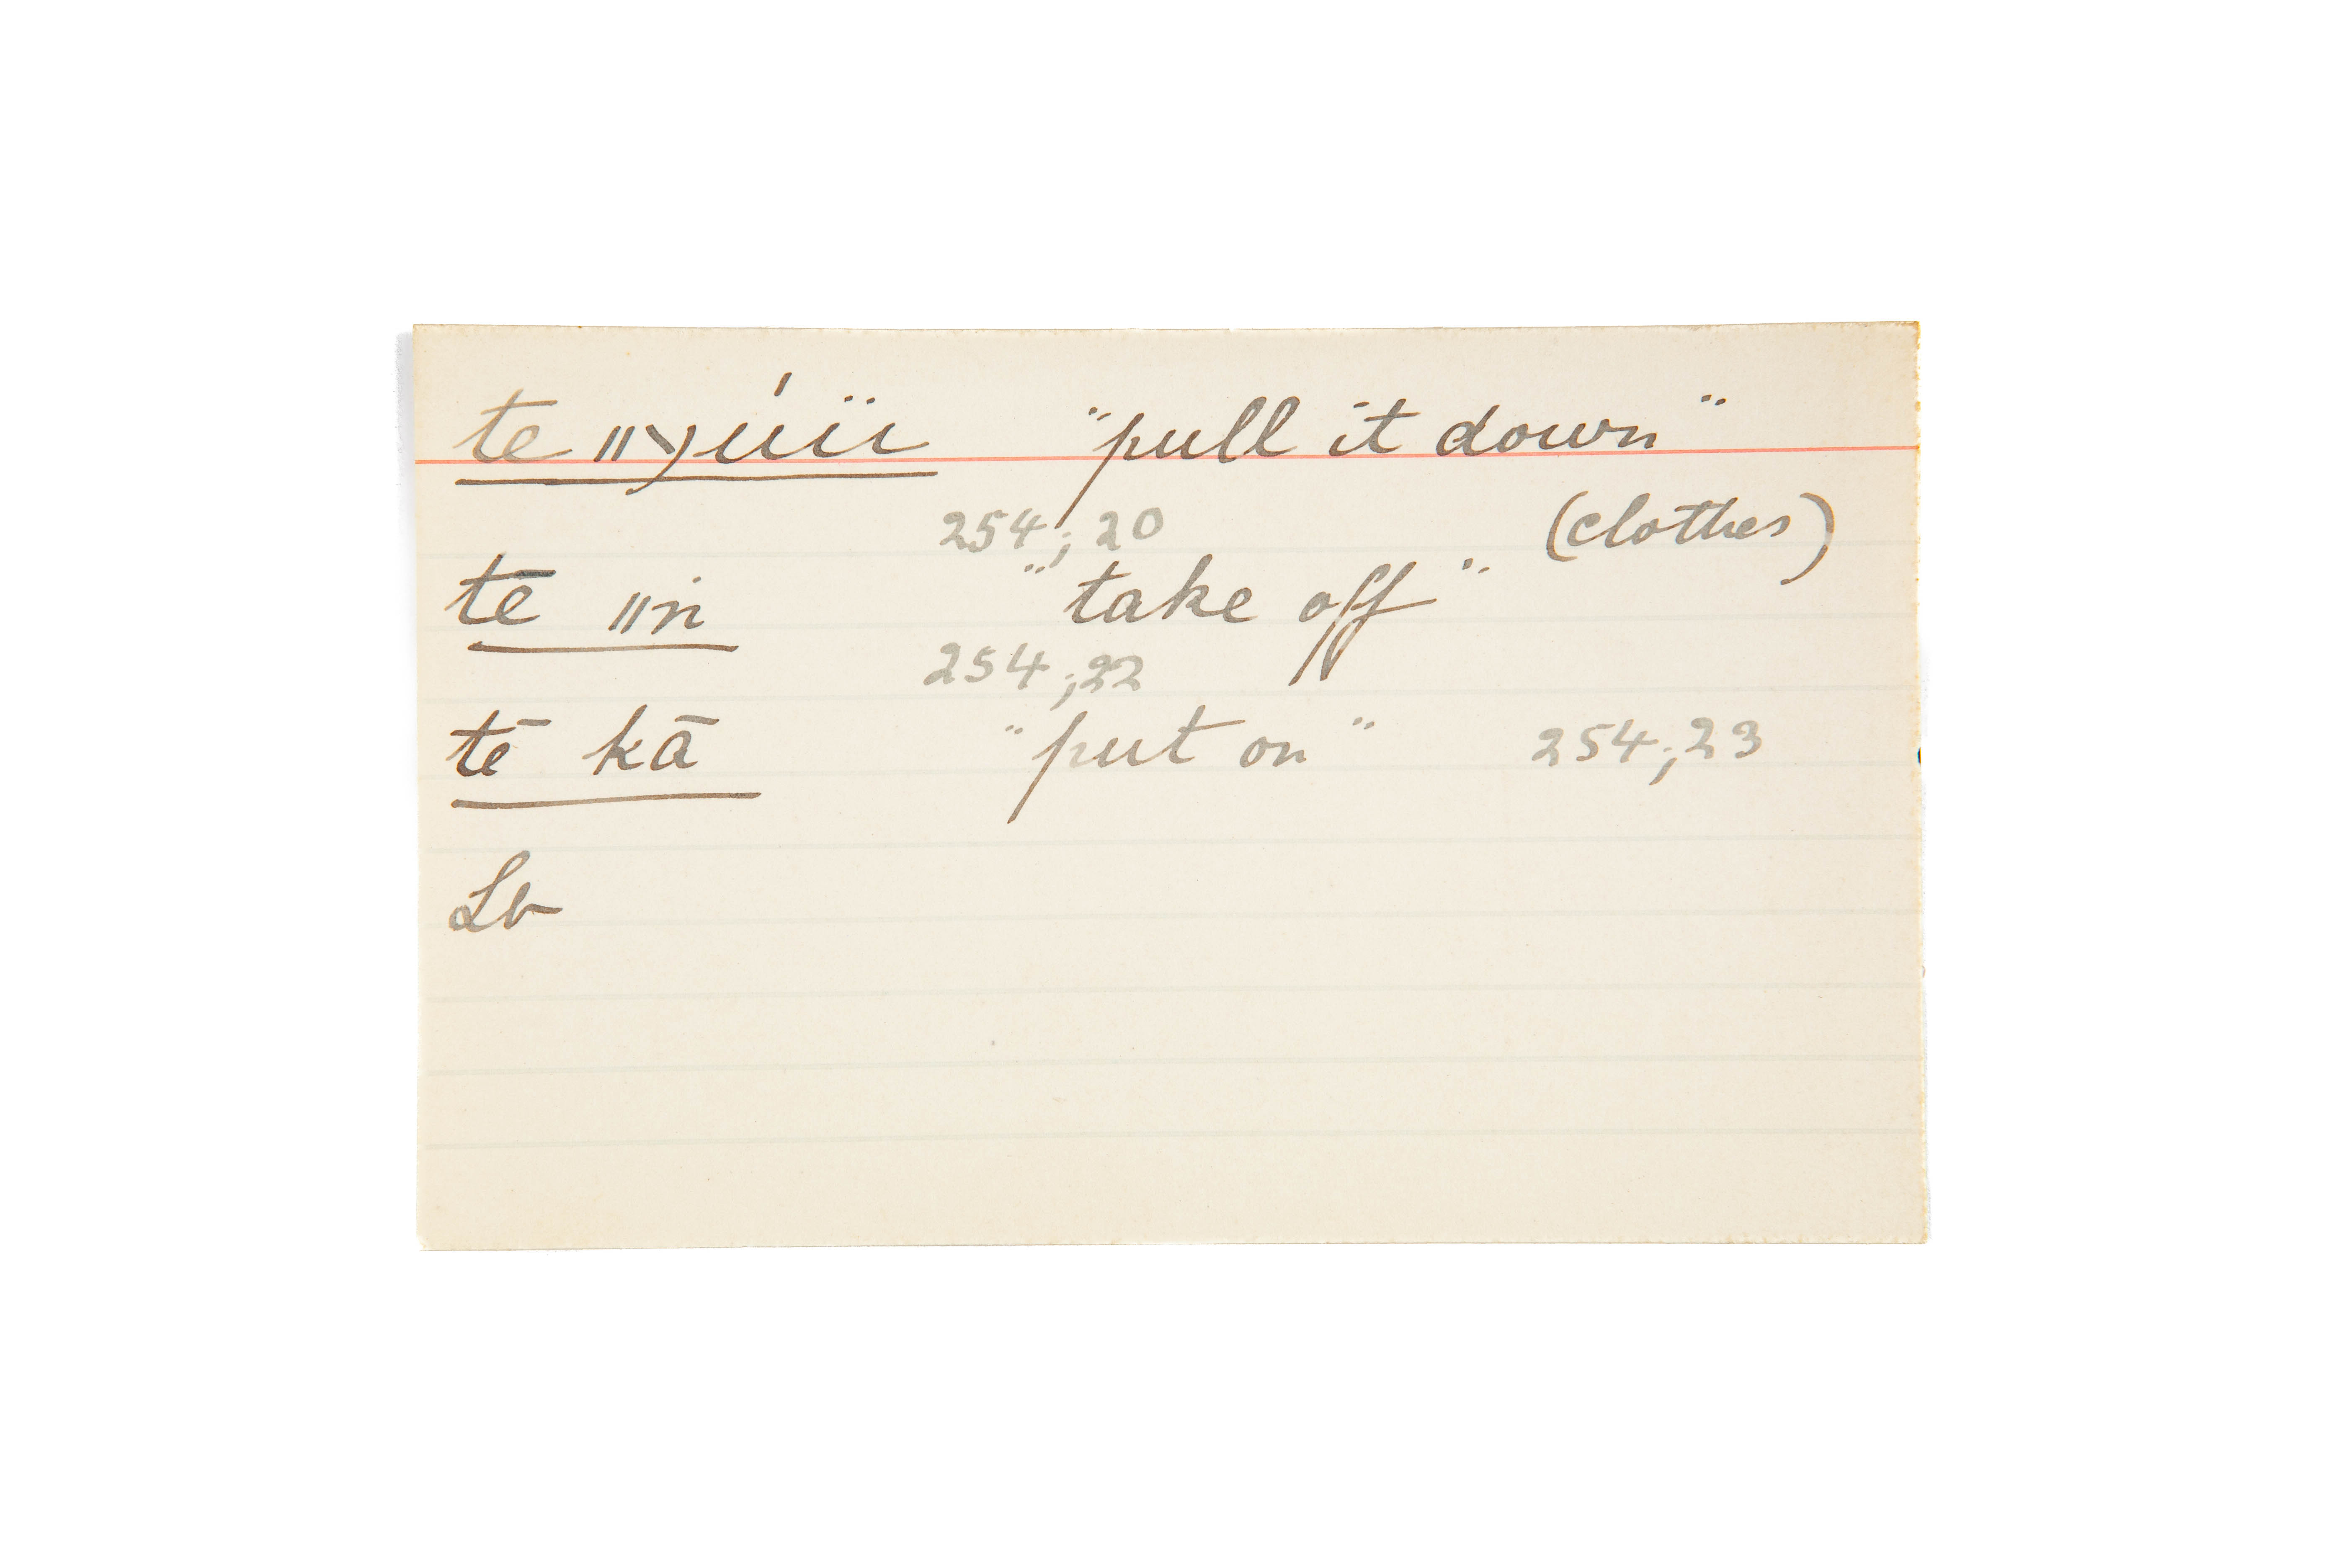 te ǁχúïï "pull it down"
254; 20 (clothes)
tē ǁṅ "take off"
254; 22
tē kā "put on" 254; 23